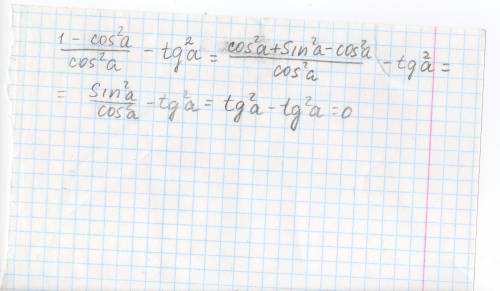 1 - cos²a / cos²a - tg²a = cos²a + sin²a - cos²a / cos²a - tg²a =
= Sin²a / cos²a - tg²a = tg²a - tg²a = 0